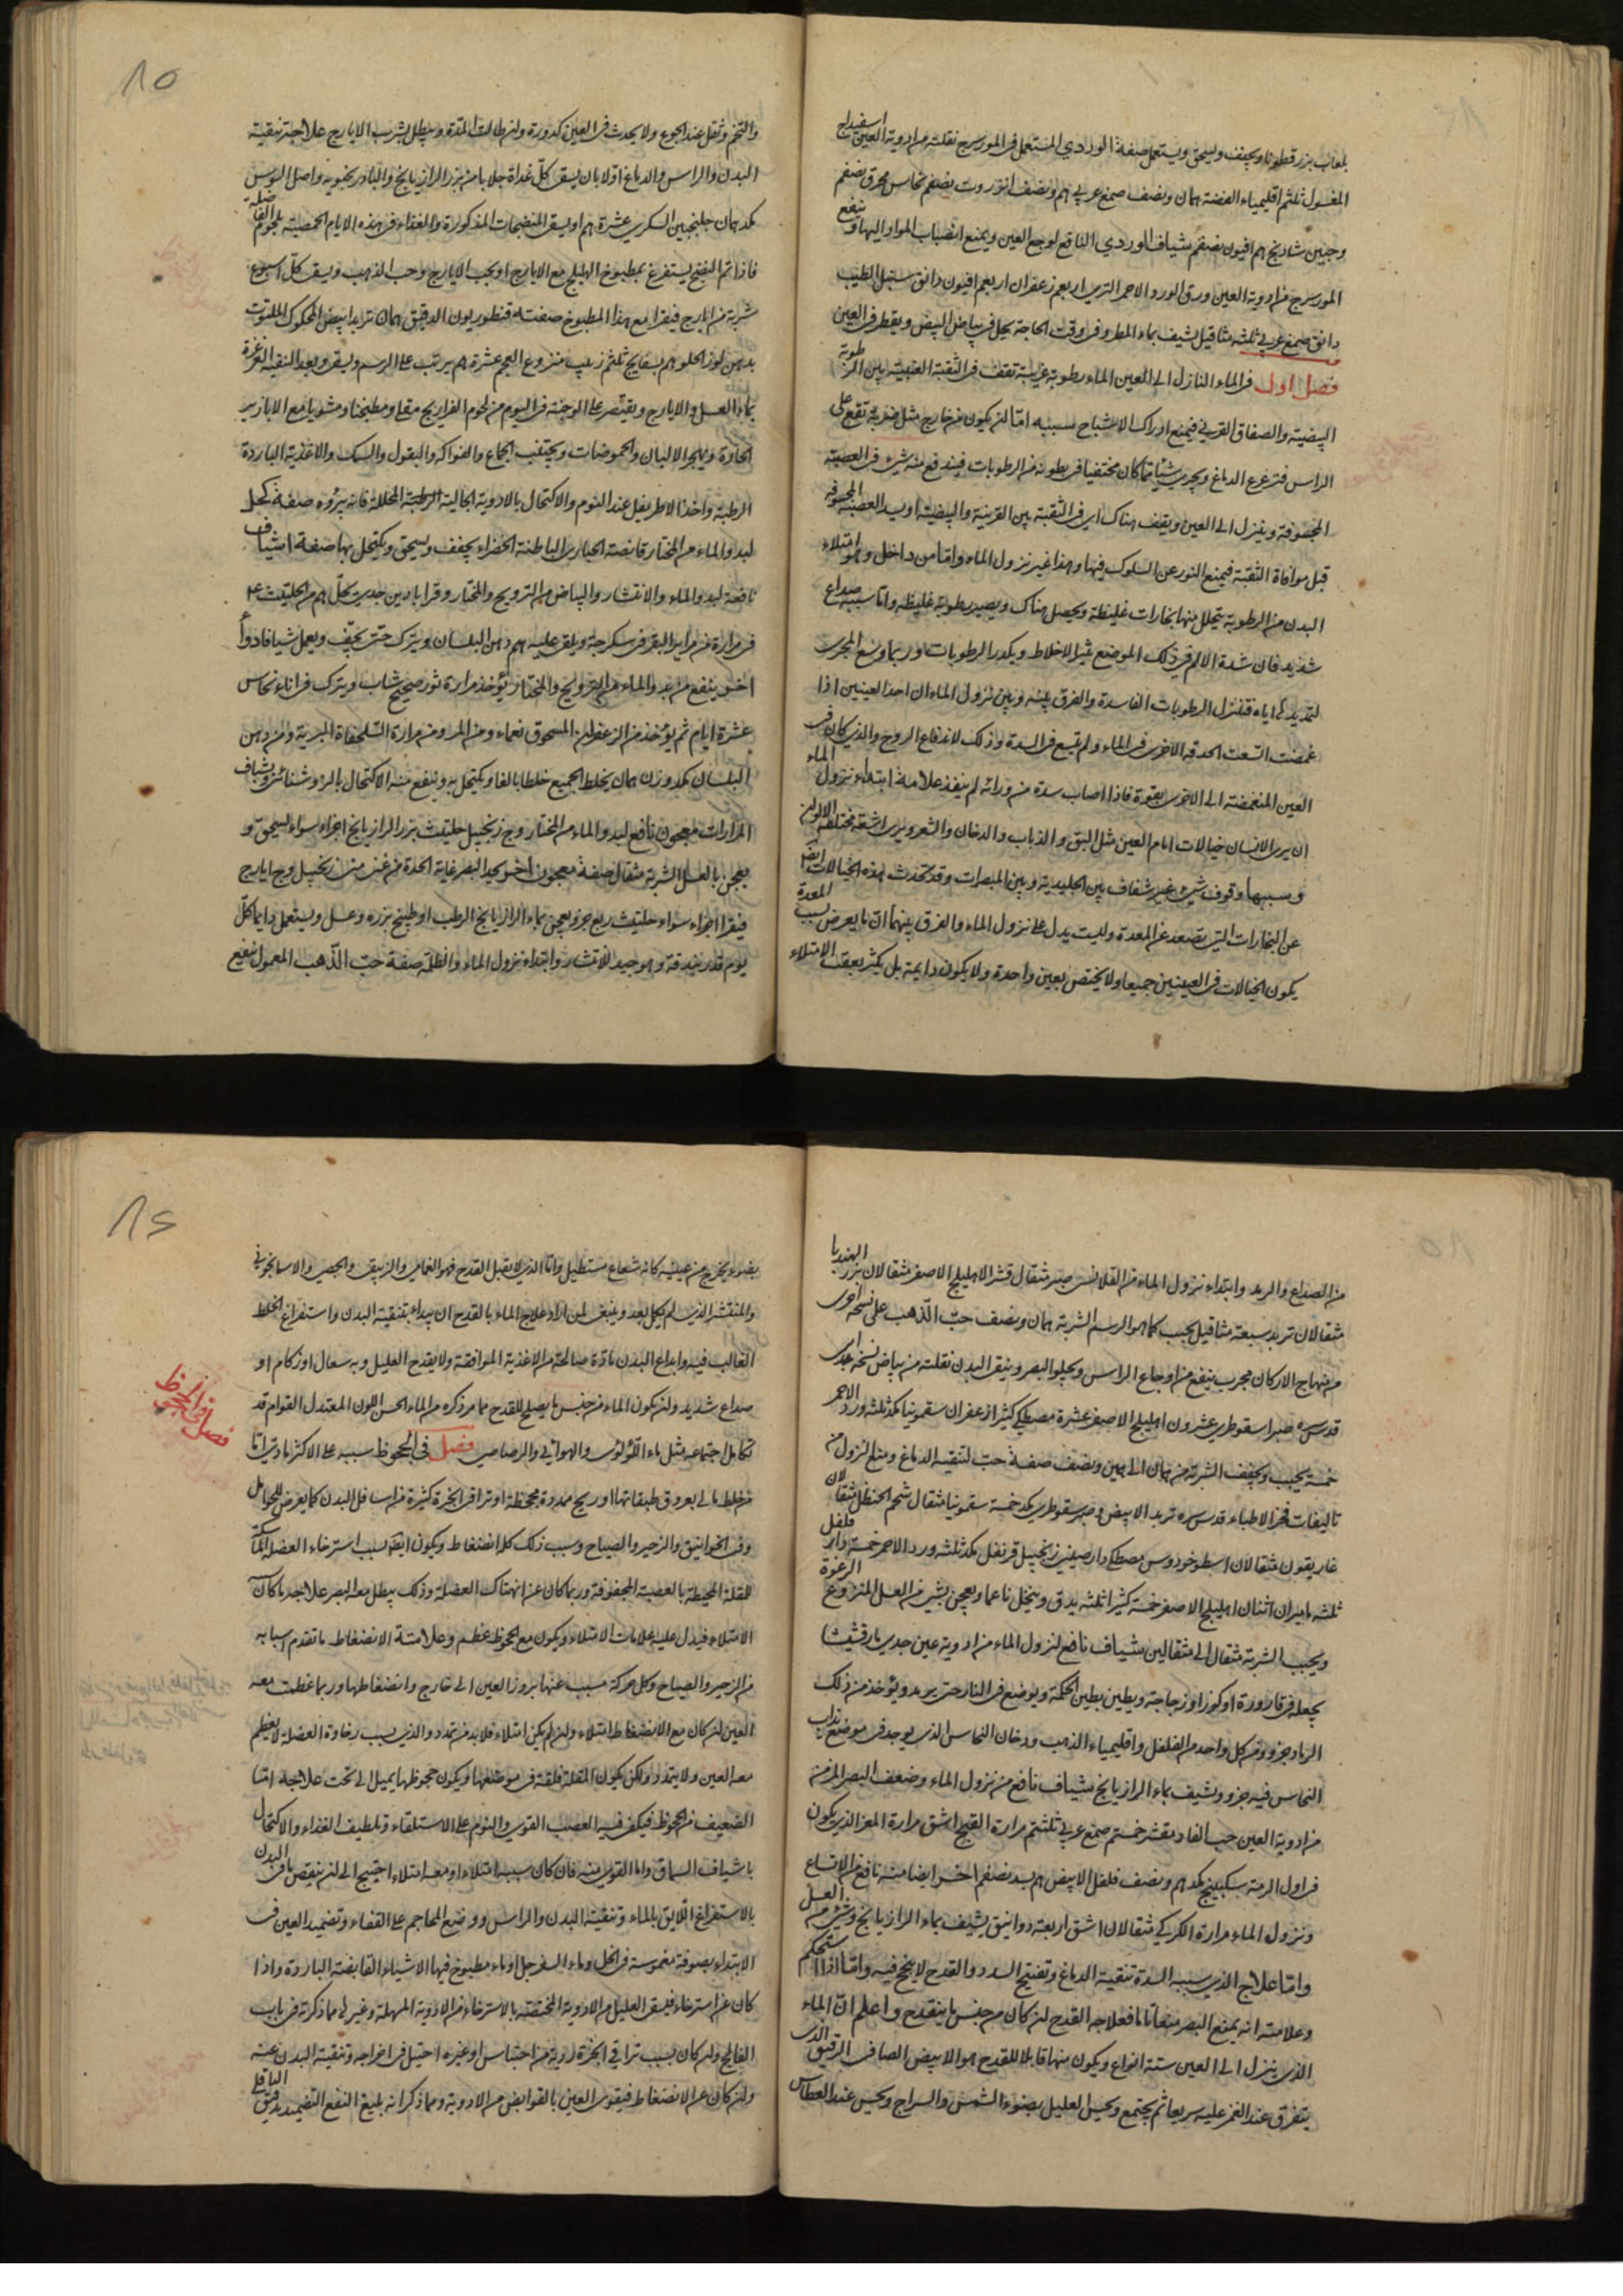 بلعاب بزر قطونا ويجفف ويسحق ويستعمل صفة الوردي المستعمل في المورسرج نقلته من ادوية العين اسفيداج
المغسول ثلثم اقليمياء الفضة همان ونصف صمغ عربي هم ونصف انزروت نصفم نحاس محرق نصفم
وجبين شادنج هم افيون نصفم شياف الوردي النافع لوجع العين ويمنع انصباب المواد اليها وينفع
المورسرج من ادوية العين ورق الورد الاحمر الطري اربعم زعفران اربعم افيون دانق سنبل الطيب
دانق صمغ عربي ثلثه مثاقيل يشيف بماء المطر وفي وقت الحاجة يحل في بياض البيض ويقطر في العين
فصل اول في الماء النازل الى العين الماء رطوبة غريبة تقف في الثقبة العنبية بين الرطوبة
البيضية والصفاق القرني فيمنع ادراك الاشباح سببه اما ان يكون من خارج مثل ضربة تقع على
الراس فتزعزع الدماغ ويجري شيئا مما كان محتقنا في بطونه من الرطوبات فيندفع منه شيء في العصبة
المجوفة وينزل الى العين ويقف هناك اي في الثقبة بين القرنية والبيضية او يسد العصبة المجوفة
قبل موافاة الثقبة فيمنع النور عن السلوك فيها وهذا غير نزول الماء واما من داخل وهو امتلاء
البدن من الرطوبة يتحلل منها بخارات غليظة ويحصل هناك ويصير رطوبة غليظه واما سببه صداع
شديد فان شدة الالم في ذلك الموضع يثير الاخلاط ويكدر الرطوبات وربما وسع المجرى
لتمديده اياه فتنزل الرطوبات الفاسدة والفرق بينه وبين نزول الماء ان احد العينين اذا
غمضت اتسعت الحدقة الاخرى في الماء ولم تتسع في السدة وذلك لاندفاع الروح والذي كان في
العين المنغمضة الى الاخرى بقوة فاذا اصاب سدة من ورائه لم ينفذ علامة ابتداء نزول الماء
ان يرى الانسان خيالات امام العين مثل البق والذباب والدخان والشعر ويرى اشعة مختلطة الالوان
وسببها وقوف شيء غير شفاف بين الجليدية وبين المبصرات وقد تحدث هذه الخيالات ايضا
عن البخارات التي تصعد عن المعدة وليست يدل على نزول الماء والفرق بينهما ان ما يعرض بسبب المعدة
يكون الخيالات في العينين جميعا ولا يختص بعين واحدة ولا يكون دايمة بل يكثر بعقب الامتلاء
١٥
والتخم وتقل عند الجوع ولا يحدث في العين كدورة وان طالت المدة ويبطل بشرب الايارج علاجه تنقية
البدن والراس والدماغ اولا بان يسقى كل غداة جلابا من بزر الرازيانج والبادرنجبويه واصل السوس
مكد همان جلنجبين السكري عشرة هم او يسقى المنضجات المذكورة والغذاء في هذه الايام الحمصية بلحوم الفاضلة
فاذا تم النضج يستفرغ بمطبوخ الهليلج مع الايارج او بحب الايارج وحب الذهب ويسقى كل اسبوع
شربة من ايارج فيقرا مع هذا المطبوخ صفته قنطوريون الدقيق همان تربد ابيض المحكوك الملتوت
بدهن لوز الحلو هم بسفايج ثلثم زبيب منزوع العجم عشرة هم يرتب على الرسم ويسقى وبعد التنقية الغرغرة
بماء العسل والايارج ويقتصر على الوجبة في اليوم من لحوم الفراريج مقلا ومطجنا ومشويا مع الابازير
الحارة ويهجر الالبان والحموضات ويجتنب الجماع والفواكه والبقول والسمك والاغذية الباردة
الرطبة واخذ الاطريفل عند النوم والاكتحال بالادوية الجالية الرطبة المحللة فانه يبرؤه صفة كحل
لبدو الماء من المختار قانصة الحبارى الباطنة الخضراء يجفف ويسحق ويكتحل بها صفة اشياف
نافعة لبدو الماء والانتشار والبياض من الترويح والمختار وقرابادين جدي يحل هم من الحلتيت ٤
في مرارة من مراير البقر في سكرجة ويلقى عليه هم دهن البلسان ويترك حتى يجف ويعمل شيافا دواء
اخر ينفع من بدو الماء من الترويح والمختار يؤخذ مرارة ثور صحيح شاب ويترك في اناء نحاس
عشرة ايام ثم يؤخذ من الزعفران المسحوق نعماء ومن المر ومن مرارة السلحفاة البرية ومن دهن
البلسان مكد وزن همان يخلط الجميع خلطا بالغا ويكتحل به وينفع منه الاكتحال بالروشنائي وبشياف
المرارات معجون نافع لبدو الماء من المختار وج زنجبيل حلتيت بزر الرازيانج اجزاء سواء يسحق و
يعجن بالعسل الشربة مثقال صفة معجون اخر يحد البصر غاية الحدة من غنى منى زنجبيل وج ايارج
فيقرا اجزاء سواء حلتيت ربع جزو يعجن بماء الرازيانج الرطب او طبيخ بزره وعسل ويستعمل دايما كل
يوم قدر بندقة وهو جيد للانتشار وابتداء نزول الماء والظلمة صفة حب الذهب المعمول ينفع
من الصداع والرمد وابتداء نزول الماء من القلانسي صبر مثقال قشر الاهليلج الاصفر مثقالان بزر الهندبا
مثقالان تربد سبعة مثاقيل يحبب كما هو الرسم الشربة همان ونصف حب الذهب على نسخة اخرى
من منهاج الاركان مجرب ينفع من اوجاع الراس ويجلو البصر وينقي البدن نقلته من بياض نسخه جدي
قدس سره صبر اسقوطري عشرون اهليلج الاصفر عشرة مصطكى كثيرا زعفران سقمونيا مكد ثلثه ورد الاحمر
خمسة يحبب ويجفف الشربة من همان الى همين ونصف صفة حب لتنقية الدماغ ومنع النزول من
تاليفات فخر الاطباء قدس سره تربد الابيض وصبر سقوطري مكد خمسة سقمونيا مثقال شحم الحنظل مثقالان
غاريقون مثقالان اسطوخودوس مصطكى دارصيني زنجبيل قرنفل مكد ثلثه ورد الاحمر خمسة دار فلفل
ثلثه ماميران اثنان اهليلج الاصفر خمسة كثيرا ثلثه يدق وينخل ناعما ويعجن بشيء من العسل المنزوع الرغوة
ويحبب الشربة مثقال الى مثقالين شياف نافع لنزول الماء من ادوية عين جدي مارقشيثا
يجعل في قارورة او كوز او زجاجة ويطين بطين الحكمة ويوضع في النار حتى يرمد ويؤخذ من ذلك
الرماد جزو ومن كل واحد من الفلفل واقليمياء الذهب ودخان النحاس الذي يوجد في موضع يذاب
النحاس فيه جزو ويشيف بماء الرازيانج شياف نافع من نزول الماء وضعف البصر المزمن
من ادوية العين حب الغار مقشر خمستم صمغ عربي ثلثتم مرارة القبج اشق مرارة المعز الذي يكون
في اول الرمة سكبينج مكد هم ونصف فلفل الابيض هم سد نصفم اخر ايضا منه نافع من الاتساع
ونزول الماء مرارة الكركي مثقالان اشق اربعة دوانيق يشيف بماء الرازيانج وشيء من العسل
واما علاج الذي سببه السدة تنقية الدماغ وتفتيح السدد والقدح لا ينجح فيه واما اذا استحكم
وعلامته انه يمنع البصر منعا تاما فعلاجه القدح ان كان من جنس ما ينقدح واعلم ان الماء
الذي ينزل الى العين ستة انواع ويكون منها قابلا للقدح هو الابيض الصافي الرقيق الذي
يتفرق عند الغمز عليه سريعا ثم يجتمع ويحس العليل بضوء الشمس والسراج ويحس عند العطاس
١٦
بضوء يخرج من عينيه كانه شعاع مستطيل واما الذي لا يقبل القدح فهو الغمامي والزيبقي والجصي والاسمانجوني
والمنتشر الذي لم يكمل بعد وينبغي لمن اراد علاج الماء بالقدح ان يبداء بتنقية البدن واستفراغ الخلط
الغالب فيه وايداع البدن مادة صالحة من الاغذية الموافقة ولا يقدح العليل وبه سعال او زكام او
صداع شديد وان يكون الماء من جنس ما يصلح للقدح مما مر ذكره من الماء الحسن اللون المعتدل القوام قد
تكامل اجتماعه مثل ماء اللؤلؤي والهوائي والرصاصي فصل في الجحوظ سببه على الاكثر مادي اما
فصل في الجحوظ
من خلط مالى بعروق طبقاتها او ريح ممددة مجحظة او تراقي ابخرة كثيرة من اسافل البدن كما يعرض للحوامل
وفي الخوانيق والزحير والصياح وسبب ذلك كله انضغاط ويكون ايضا بسبب استرخاء العضلة الماسكة
للمقلة المحيطة بالعصبة المجوفة وربما كان عن انهتاك العضلة وذلك يبطل معه البصر علاجه ما كان سببه
الامتلاء فيدل عليه علامات الامتلاء ويكون مع الجحوظ عظم وعلامتة الانضغاط ما تقدم اسبابه
من الزحير والصياح وكل حركة مسبب عنها بروز العين الى خارج وانضغاطها وربما عظمت معه
العين ان كان مع الانضغاط امتلاء وان لم يكن امتلاء فلا بد من تمدد والذي بسبب رخاوة العضلة لا يعظم
معه العين ولا يتمدد ولكن يكون المقلة قلقة في موضعها ويكون جحوظها يميل الى تحت علاجه اما
الضعيف من الجحوظ فيكفي فيه العصب القوي والنوم على الاستلقاء وتلطيف الغذاء والاكتحال
باشياف السماق واما القوي منه فان كان سببه امتلاء او معه امتلاء احتيج الى ان ينقص ما في البدن
بالاستفراغ اللايق بالماء وتنقية البدن والراس ووضع المحاجم على القفاء وتضميد العين في
الابتداء بصوفة مغموسة في الخل او ماء السفرجل او ماء مطبوخ فيها الاشياء القابضة الباردة واذا
كان عن استرخاء فليسق العليل من الادوية المختصة بالاسترخاء من الادوية المسهلة وغيره مما ذكرته في باب
الفالج وان كان بسبب تراقي ابخرة ردية من احتباس او غيره احتيل في اخراجه وتنقية البدن عنه
وان كان عن الانضغاط فيقوى العين بالقوابض من الادوية ومما ذكر انه بليغ النفع التضميد بدقيق الباقلى